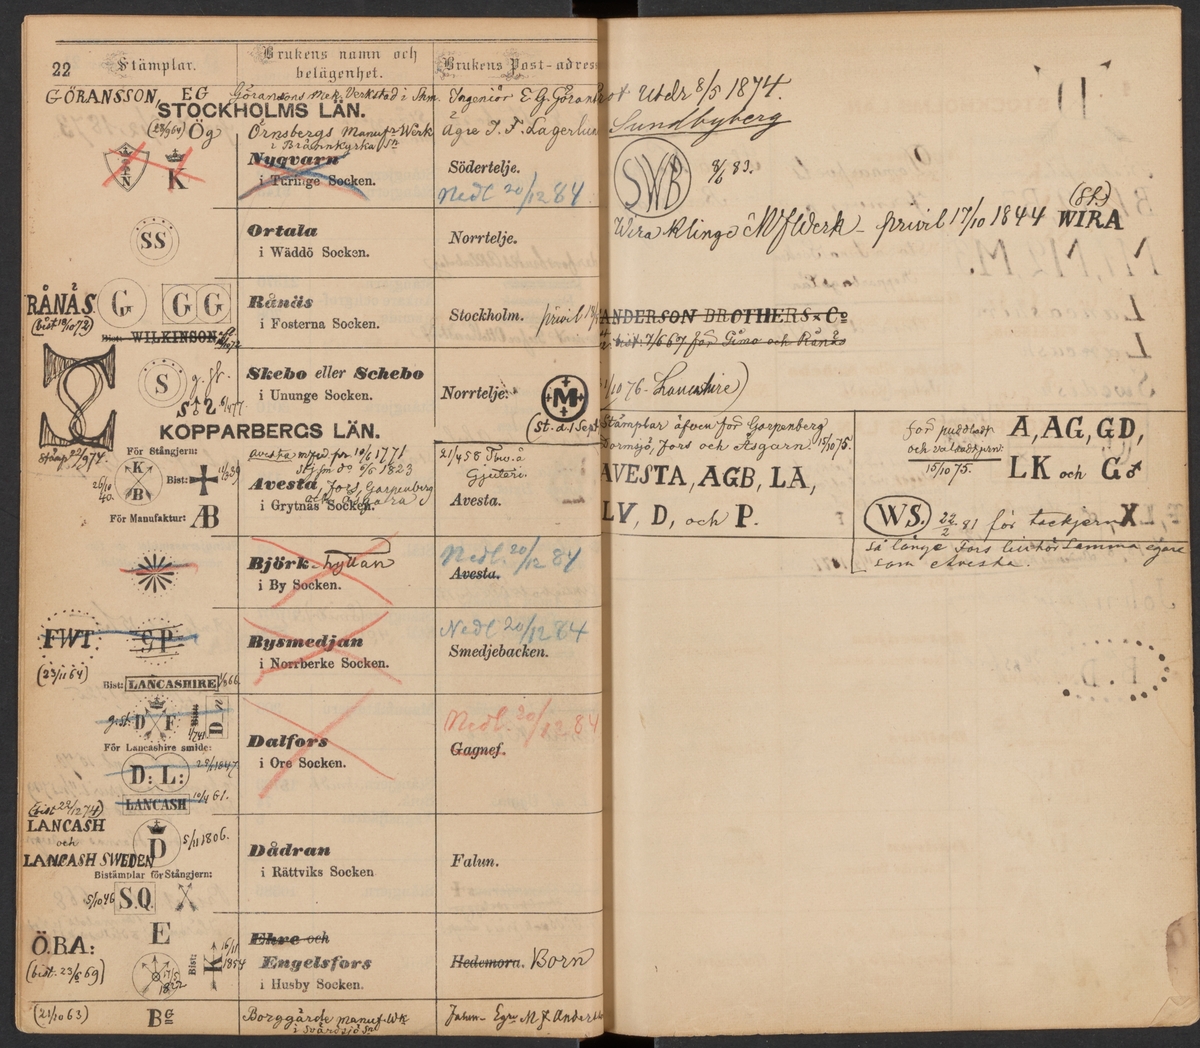 22
Stämplar.
Brukens namn och
belägenhet.
Brukens Post-adress
GÖRANSSON, EG
Göranssons Mek. Verkstad i Sthm.
Ingeniör E G. Görans
Utdr 8/5 1874.
STOCKHOLMS LÄN.
Ög
Örnsbergs Manufr Werk
i Brännkyrka Sn
Ägre J. F. Lagerlu
Sundbyberg
N
K
Nyqvarn
i Turinge Socken.
Södertelje.
Nedl 20/12 84.
SWB
8/6 83.
Wira Klinge & Mf Werk - privil 17/10 1844 WIRA
(St.)
SS
Ortala
i Wäddö Socken.
Norrtelje.
RÅNÄS.
(bist 19/10 72)
G
G G
WILKINSON
Rånäs
i Fosterna Socken.
Stockholm.
privil
ANDERSON BROTHERS & Co
7/6 67 för Gimo och Rånäs
S
Skebo eller Schebo
i Ununge Socken.
Norrtelje.
M
(St. d. 1 Sept
/10 76 - Lancashire)
Stämp 22/9 74.
KOPPARBERGS LÄN.
För Stångjern:
K
B
26/10
40.
Bist:
För Manufaktur: AB
avesta
10/6 1771
1823
Avesta, Fors, Garpenberg
och Åsgarn
i Grytnäs Socken.
Gjuteri.
Avesta.
Stämplar äfven för Garpenberg
Dormsjö, Fors och Åsgarn. 15/10 75.
AVESTA, AGB, LA,
LV, D, och P.
för puddladt
och valsadt jern:
15/10 75.
A, AG, GD,
LK och G♂
WS. 22/2 81 för tackjern X
så länge Fors tillhör samma egare
som Avesta.
Björkhyttan
i By Socken.
Nedl. 20/12 84
Avesta.
FWT
(23/11 64)
G P
Bist: LANCASHIRE
Bysmedjan
i Norrberke Socken.
Nedl 20/12 84
Smedjebacken.
D F
För Lancashire smide:
D: L:
LANCASH 10/4 61.
Dalfors
i Ore Socken.
Nedl. 20/12 84
Gagnef.
(bist 22/12 74)
LANCASH
och
LANCASH SWEDEN
D
5/11 1806.
Bistämplar för Stångjern:
5/10 46
S.Q.
Dådran
i Rättviks Socken
Falun.
ÖRA:
(bist. 23/6 69)
E
Bist:
K
16/11
1854
17/5
1822
Ehre och
Engelsfors
i Husby Socken.
Hedemora. Born
(21/10 63)
BG
Borggärde manuf. Wk
i Svärdsjö Sn